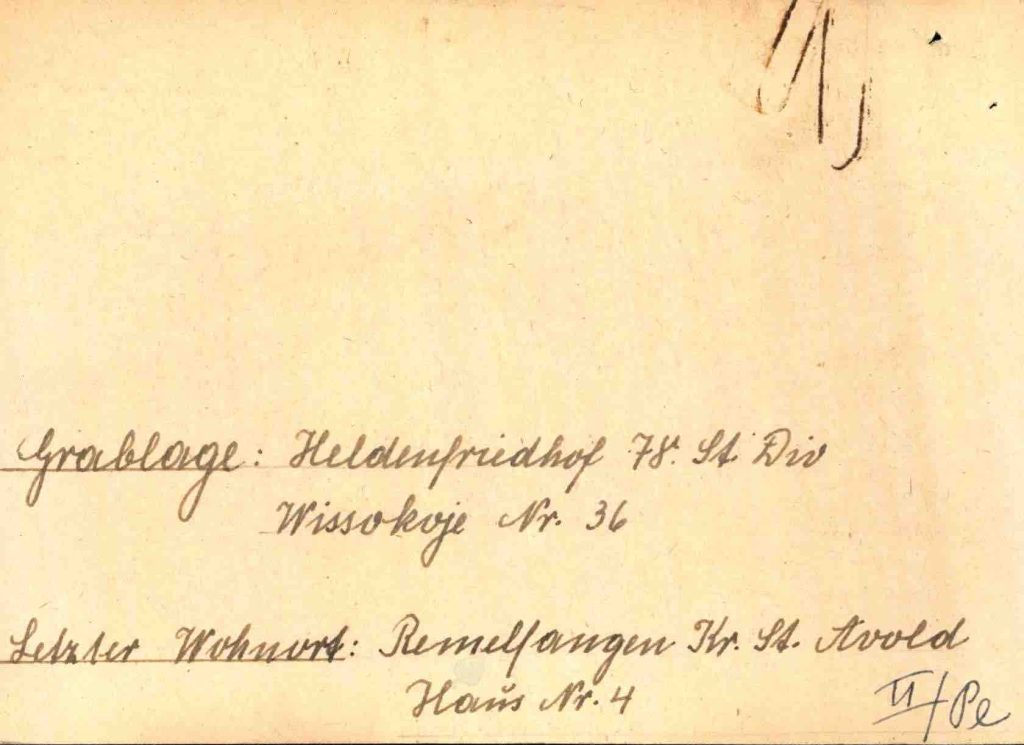 Grablage: Heldenfriedhof 78. St. Div
Wissokoje Nr. 36
Letzter Wohnort: Remelfangen Kr. St. Avold
Haus Nr. 4
II/Pe